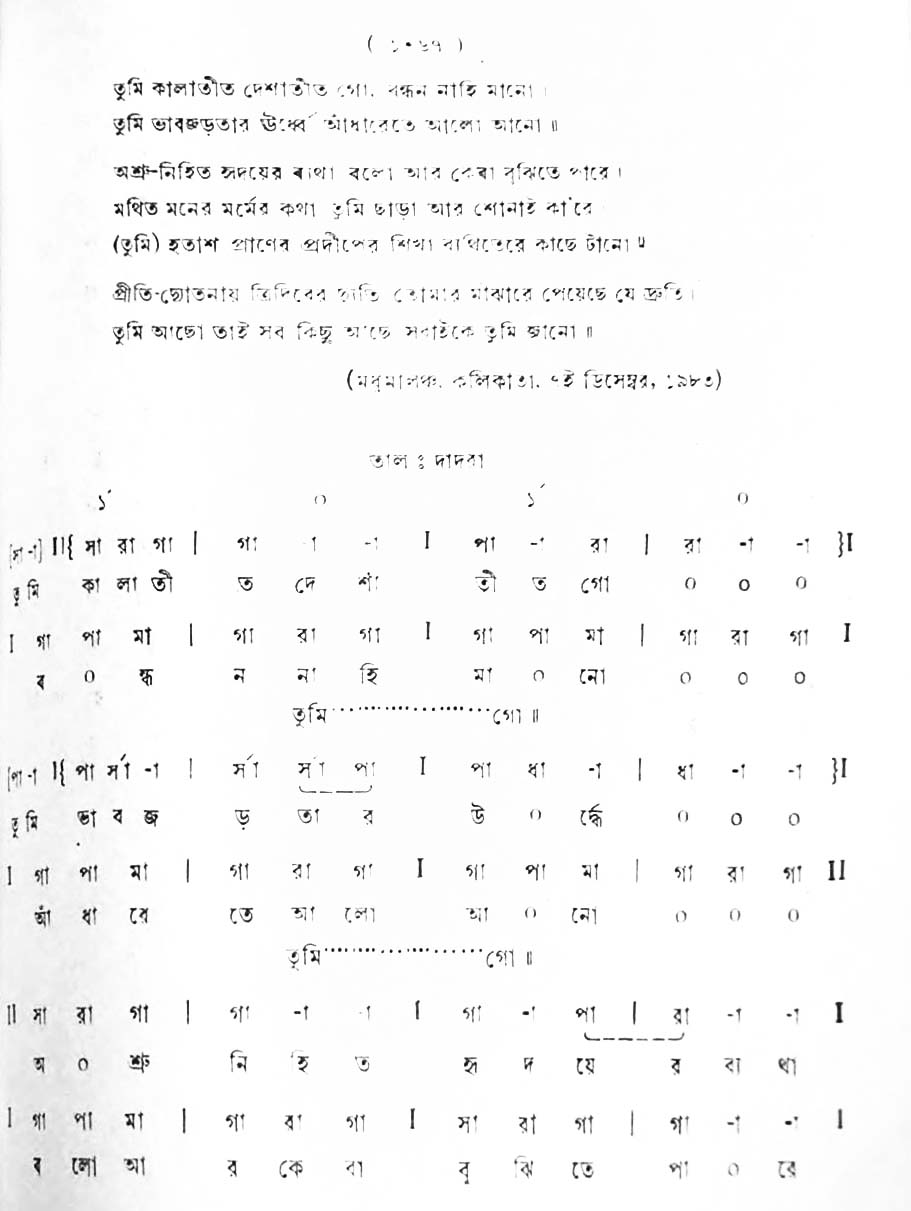 ( ১০৬৭ )
তুমি কালাতীত দেশাতীত গো, বন্ধন নাহি মানো ।
তুমি ভাবজড়তার ঊর্ধ্বে আঁধারেতে আলো আনো ॥
অশ্রু-নিহিত হৃদয়ের ব্যথা বলো আর কেবা বুঝিতে পারে ।
মথিত মনের মর্মের কথা তুমি ছাড়া আর শোনাই কা'রে
(তুমি) হতাশ প্রাণের প্রদীপের শিখা ব্যথিতেরে কাছে টানো ॥
প্রীতি-দ্যোতনায় ত্রিদিবের দ্যুতি তোমার মাঝারে পেয়েছে যে দ্রুতি ।
তুমি আছো তাই সব কিছু আছে সবাইকে তুমি জানো ॥
(মধুমালঞ্চ, কলিকাতা, ৭ই ডিসেম্বর, ১৯৮৩)
তাল ঃ দাদরা
১´ ০ ১´ ০
[সা -া] II{ সা রা গা | গা -া -া I পা -া রা | রা -া -া }I
তু মি কা লা তী ত দে শা তী ত গো ০ ০ ০
I গা পা মা | গা রা গা I গা পা মা | গা রা গা I
ব ০ ন্ধ ন না হি মা ০ নো ০ ০ ০
তুমি·····················গো ॥
[পা -া I{ পা র্সা -া | র্সা র্সা পা I পা ধা -া | ধা -া -া }I
তু মি ভা ব জ ড় তা র উ ০ র্দ্ধে ০ ০ ০
I গা পা মা | গা রা গা I গা পা মা | গা রা গা II
আঁ ধা রে তে আ লো আ ০ নো ০ ০ ০
তুমি·····················গো ॥
II সা রা গা | গা -া -া I গা -া পা | রা -া -া I
অ ০ শ্রু নি হি ত হৃ দ য়ে র ব্য থা
I গা পা মা | গা রা গা I সা রা গা | গা -া -া I
ব লো আ র কে বা বু ঝি তে পা ০ রে